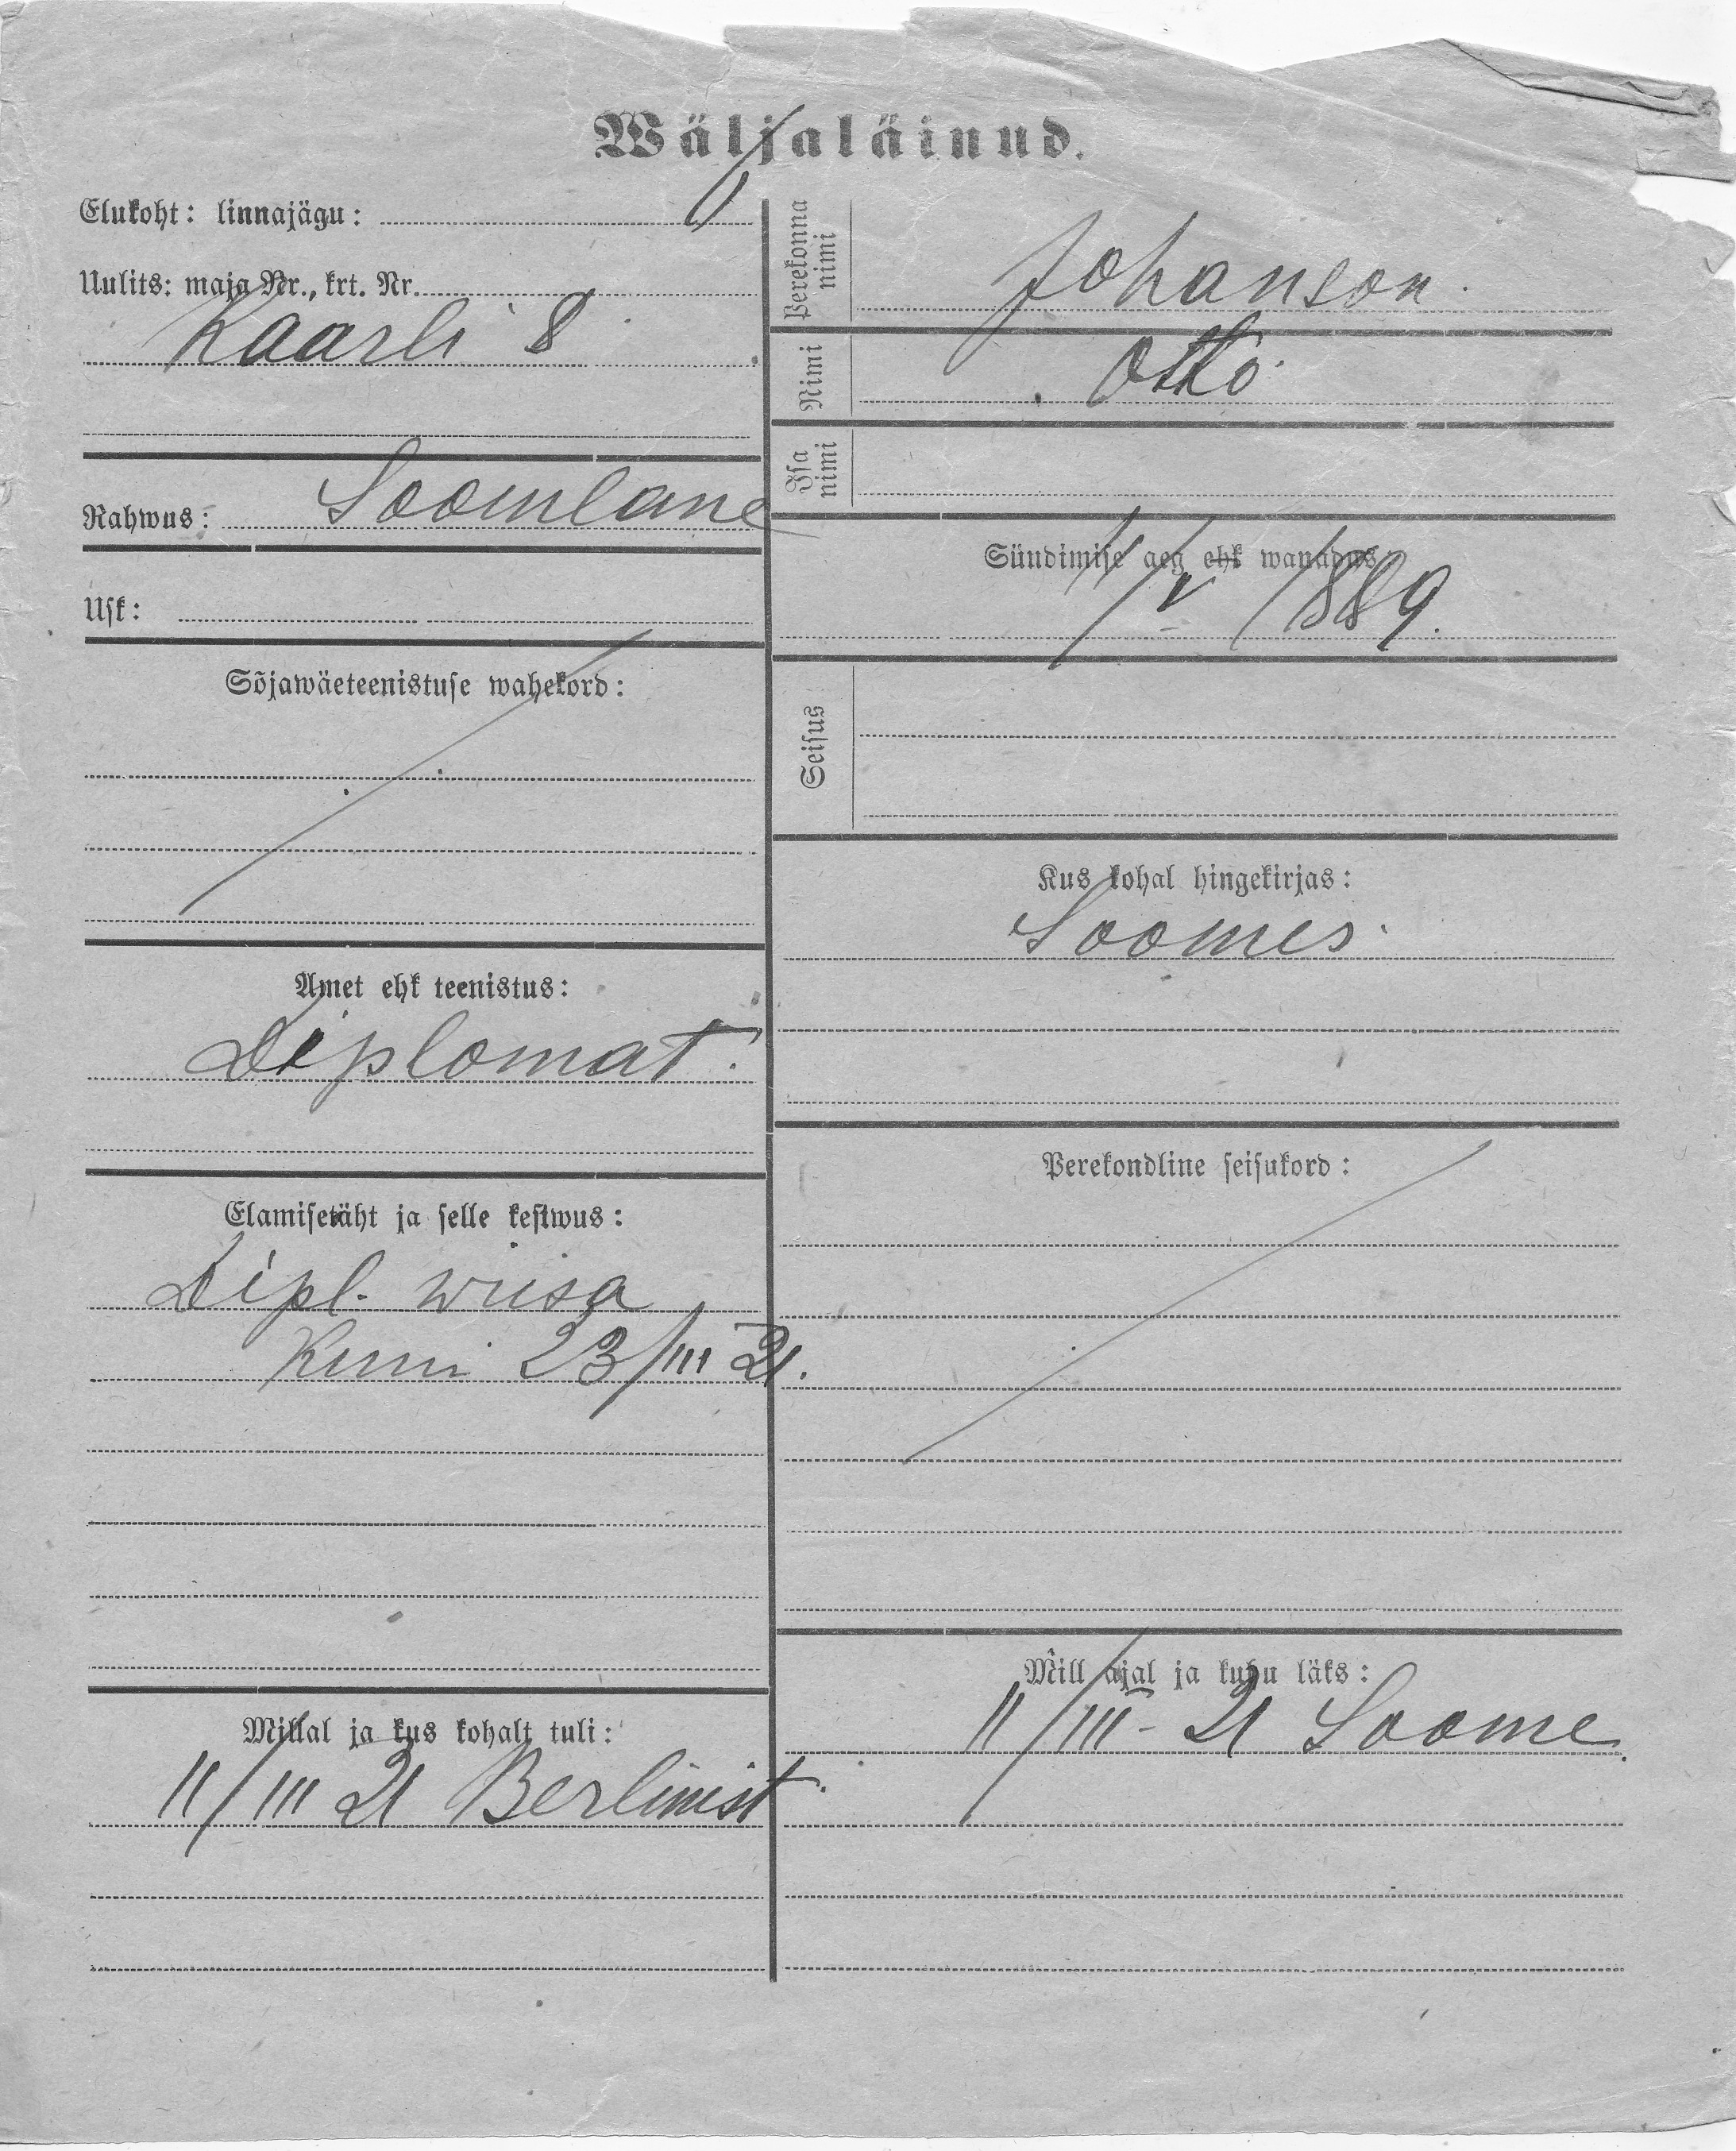 Wäljaläinud.
Elukoht: linnajägu:
Uulits: maja Nr., krt. Nr.
Kaarli 8
Rahwus: Soomlane
Usk:
Sõjawäeteenistuse wahekord:
Amet ehk teenistus:
Diplomat.
Elamisetäht ja selle kestwus:
Dipl. wiisa
Kuni 23/III 21.
Millal ja kus kohalt tuli:
11/III 21 Berlinist.
Perekonna nimi
Johanson.
Nimi
Otto
Isa nimi
Sündimise aeg ehk wanadus:
1889.
Seisus
Kus kohal hingekirjas:
Soomes.
Perekondline seisukord:
Mill ajal ja kuhu läks:
11/III - 21 Soome.